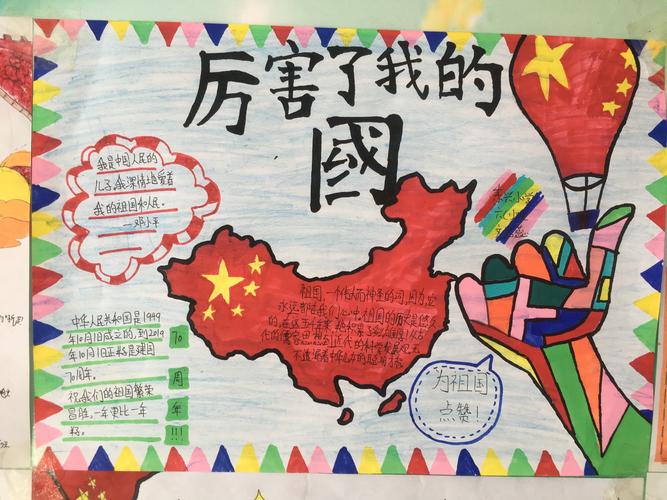 厉害了我的
國
我是中国人民的
儿子,我深情地爱着
我的祖国和人民.
—邓小平
中华人民共和国是1949
年10月1日成立的,到2019
年10月1日正好是建国
70周年。
祝我们的祖国繁荣
昌胜,一年更比一年
好。
70
周
年
!!!
祖国,一个伟大而神圣的词,因为,它
永远都在我们心中,祖国的历史是悠久
的,在这五千年
代的儒家思想到近代的科学发展
为祖国
点赞!